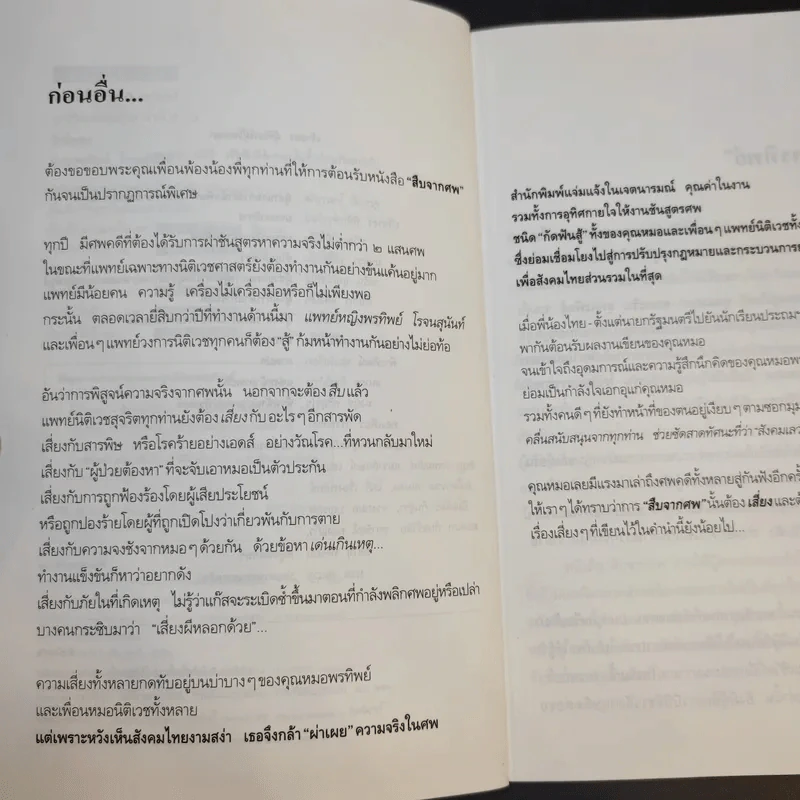 ก่อนอื่น...
ต้องขอขอบพระคุณเพื่อนพ้องน้องพี่ทุกท่านที่ให้การต้อนรับหนังสือ “สืบจากศพ”
กันจนเป็นปรากฏการณ์พิเศษ
ทุกปี มีศพคดีที่ต้องได้รับการผ่าชันสูตรหาความจริงไม่ต่ำกว่า ๒ แสนศพ
ในขณะที่แพทย์เฉพาะทางนิติเวชศาสตร์ยังต้องทำงานกันอย่างข้นแค้นอยู่มาก
แพทย์มีน้อยคน ความรู้ เครื่องไม้เครื่องมือหรือก็ไม่เพียงพอ
กระนั้น ตลอดเวลายี่สิบกว่าปีที่ทำงานด้านนี้มา แพทย์หญิงพรทิพย์ โรจนสุนันท์
และเพื่อนๆ แพทย์วงการนิติเวชทุกคนก็ต้อง “สู้” ก้มหน้าทำงานกันอย่างไม่ย่อท้อ
อันว่าการพิสูจน์ความจริงจากศพนั้น นอกจากจะต้อง สืบ แล้ว
แพทย์นิติเวชสุจริตทุกท่านยังต้อง เสี่ยง กับ อะไรๆ อีกสารพัด
เสี่ยงกับสารพิษ หรือโรคร้ายอย่างเอดส์ อย่างวัณโรค...ที่หวนกลับมาใหม่
เสี่ยงกับ “ผู้ป่วยต้องหา” ที่จะจับเอาหมอเป็นตัวประกัน
เสี่ยงกับการถูกฟ้องร้องโดยผู้เสียประโยชน์
หรือถูกปองร้ายโดยผู้ที่ถูกเปิดโปงว่าเกี่ยวพันกับการตาย
เสี่ยงกับความจงชังจากหมอๆ ด้วยกัน ด้วยข้อหา เด่นเกินเหตุ...
ทำงานแข็งขันก็หาว่าอยากดัง
เสี่ยงกับภัยในที่เกิดเหตุ ไม่รู้ว่าแก๊สจะระเบิดซ้ำขึ้นมาตอนที่กำลังพลิกศพอยู่หรือเปล่า
บางคนกระซิบมาว่า “เสี่ยงผีหลอกด้วย”...
ความเสี่ยงทั้งหลายกดทับอยู่บนบ่าบางๆ ของคุณหมอพรทิพย์
และเพื่อนหมอนิติเวชทั้งหลาย
แต่เพราะหวังเห็นสังคมไทยงามสง่า เธอจึงกล้า “ผ่าเผย” ความจริงในศพ
สำนักพิมพ์แจ่มแจ้งในเจตนารมณ์ คุณค่าในงาน
รวมทั้งการอุทิศกายใจให้งานชันสูตรศพ
ชนิด “กัดฟันสู้” ทั้งของคุณหมอและเพื่อนๆ แพทย์นิติเวชทั้ง
ซึ่งย่อมเชื่อมโยงไปสู่การปรับปรุงกฎหมายและกระบวนการ
เพื่อสังคมไทยส่วนรวมในที่สุด
เมื่อพี่น้องไทย - ตั้งแต่นายกรัฐมนตรีไปยันนักเรียนประถม
พากันต้อนรับผลงานเขียนของคุณหมอ
จนเข้าใจถึงอุดมการณ์และความรู้สึกนึกคิดของคุณหมอพร
ย่อมเป็นกำลังใจเอกอุแก่คุณหมอ
รวมทั้งคนดีๆ ที่ยังทำหน้าที่ของตนอยู่เงียบๆ ตามซอกมุม
คลื่นสนับสนุนจากทุกท่าน ช่วยซัดสาดทัศนะที่ว่า “สังคมเลว
คุณหมอเลยมีแรงมาเล่าถึงศพคดีทั้งหลายสู่กันฟังอีกครั้
ให้เราๆ ได้ทราบว่าการ “สืบจากศพ” นั้นต้อง เสี่ยง และ
เรื่องเสี่ยงๆ ที่เขียนไว้ในคำนำนี้ยังน้อยไป...